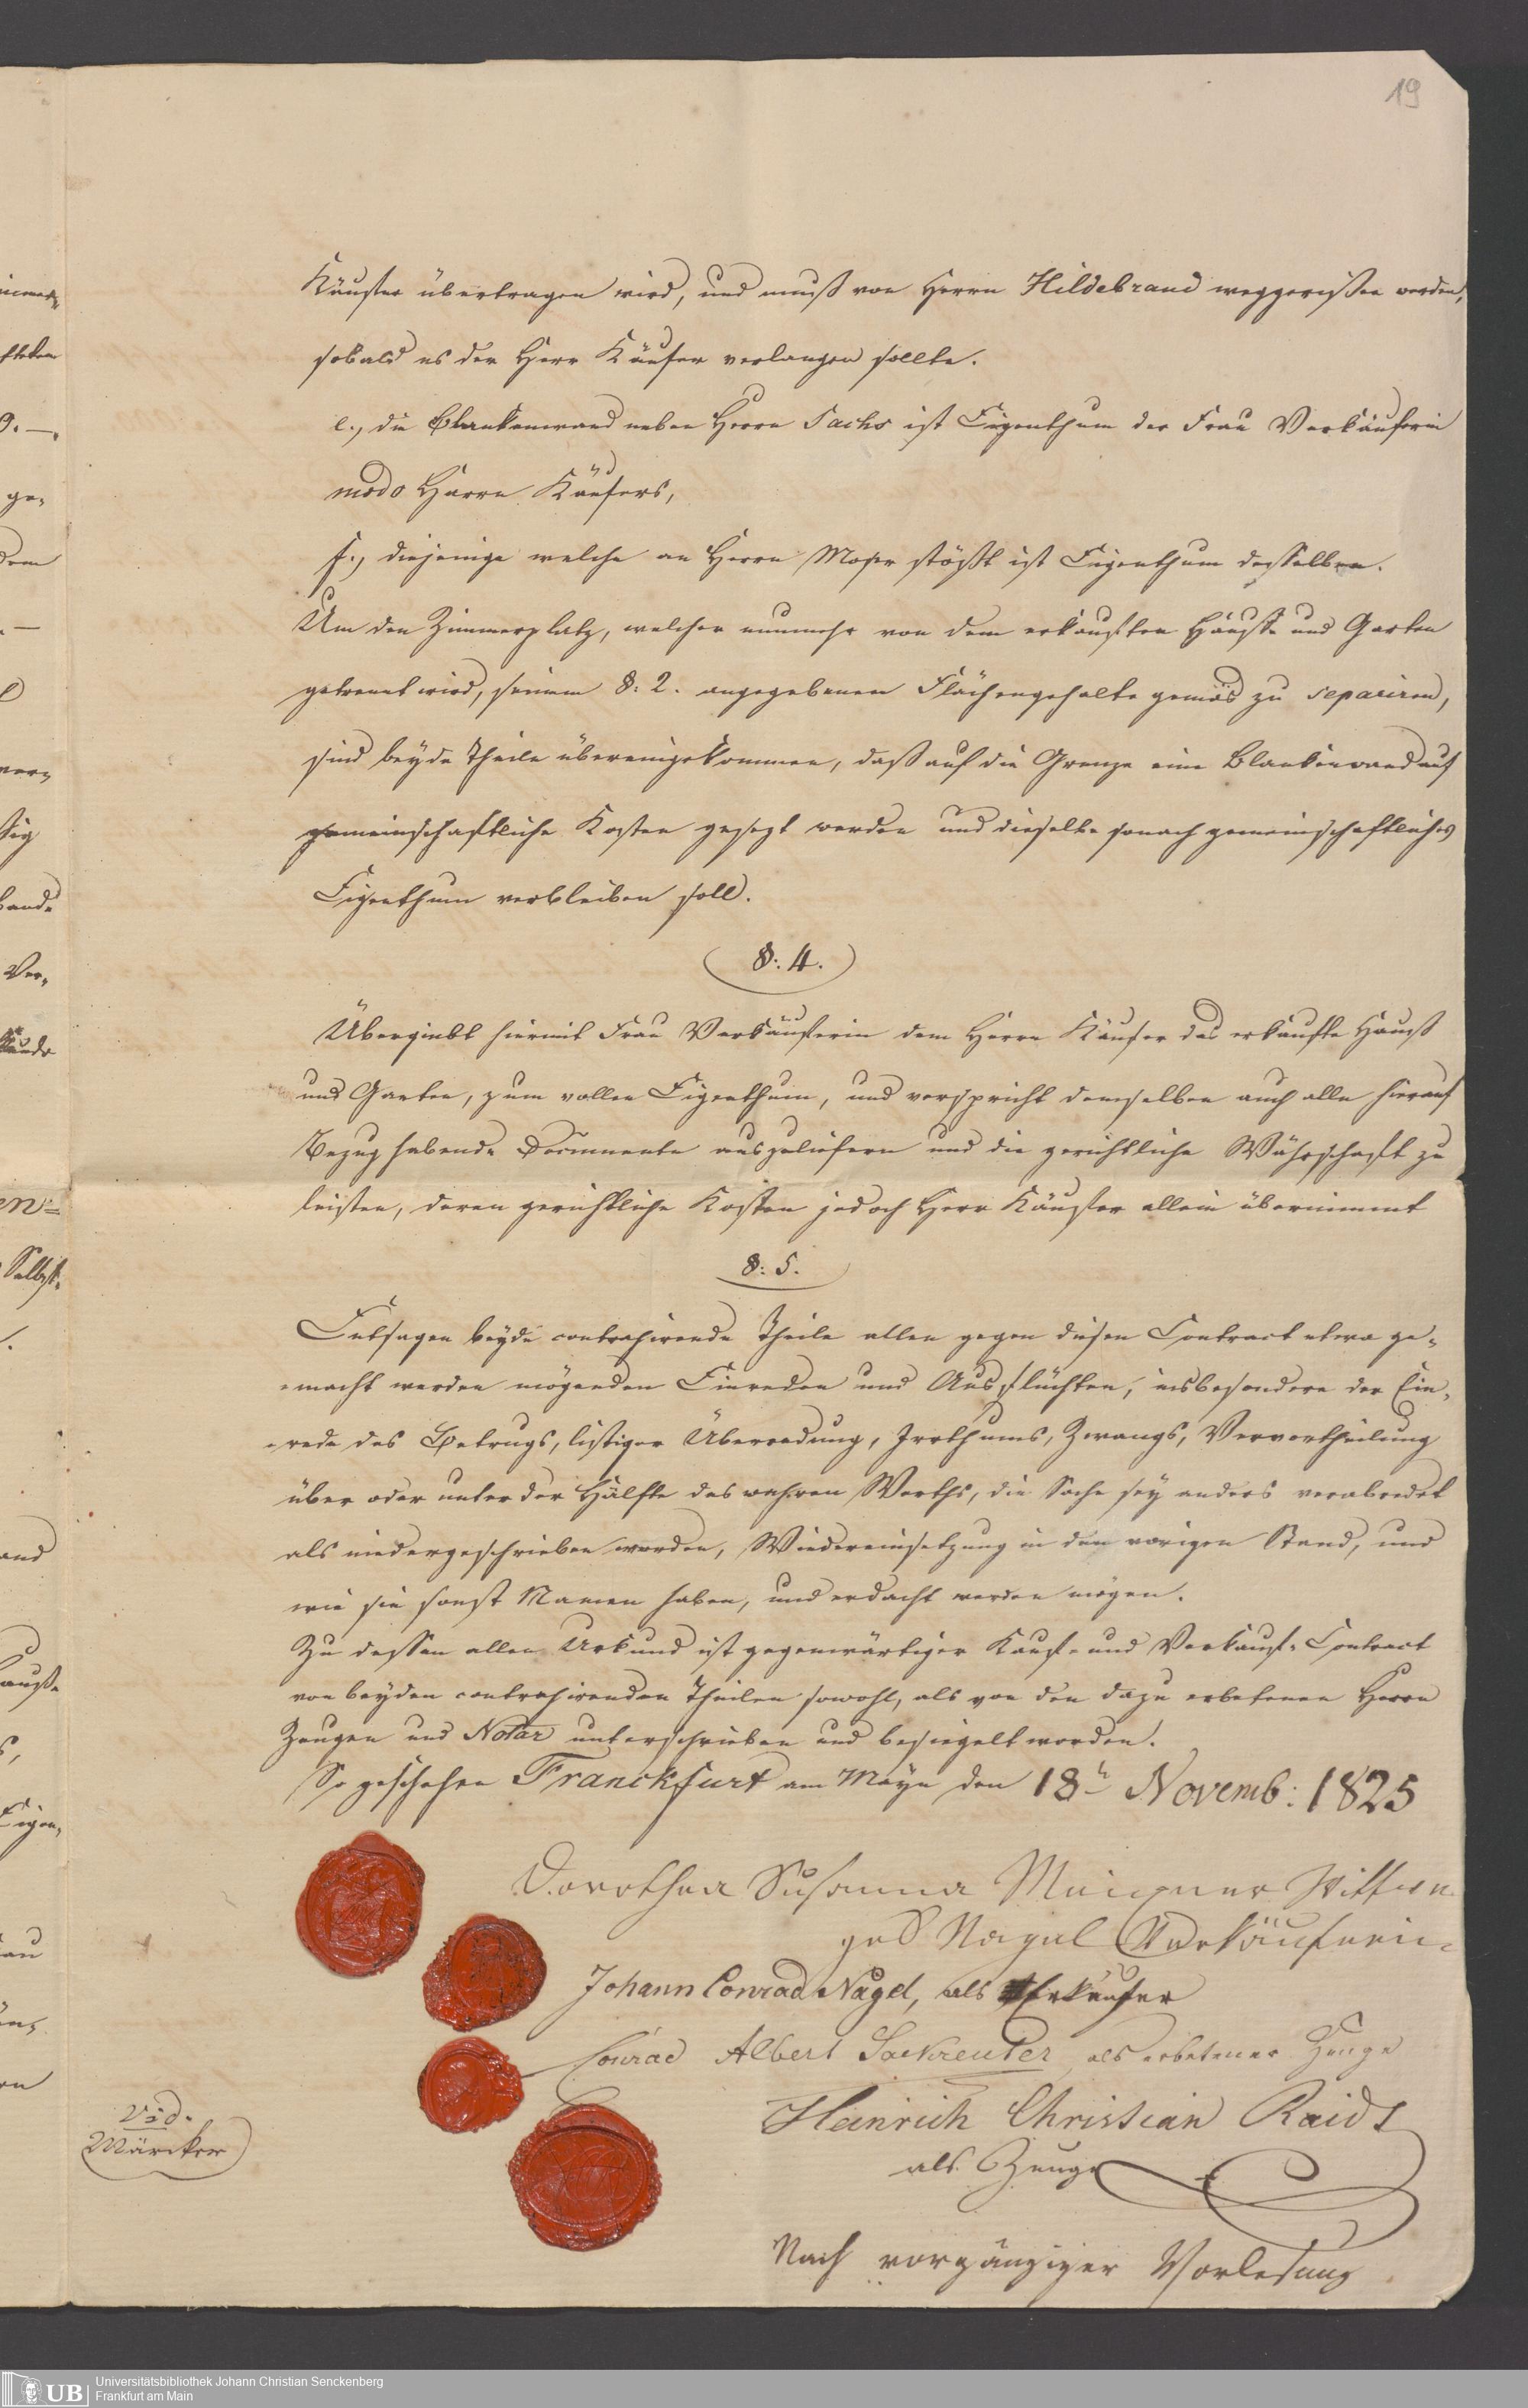 19
Käufer übertragen wird, und muß von Herrn Hildebrand weggerißen werden,
sobald es der Herr Käufer verlangen sollte.
e., die Blankenwand neben Herrn Sachs ist Eigenthum der Frau Verkäuferin
modo Herrn Käufers,
f., diejenige welche an Herrn Moser stößt ist Eigenthum desselben.
Um den Zimmerplatz, welcher nunmehr von dem erkauften Hauße und Garten
getrennt wird, seinem §: 2. angegebenen Flächengehalte gemäs zu separiren,
sind beyde Theile übereingekommen, daß auf die Grenze eine Blankenwand auf
gemeinschaftliche Kosten gesezt werden und dieselbe sonach gemeinschaftliches
Eigenthum verbleiben soll.
§: 4.
Übergiebt hiermit Frau Verkäuferin dem Herrn Käufer das erkaufte Hauß
und Garten, zum vollen Eigenthum, und verspricht demselben auch alle hierauf
Bezug habende Documente auszuliefern und die gerichtliche Währschaft zu
leisten, deren gerichtliche Kosten jedoch Herr Käufer allein übernimmt
§: 5.
Entsagen beyde contrahirende Theile allen gegen diesen Contract etwa ge-
-macht werden mögenden Einreden und Ausflüchten, insbesondere der Ein-
-rede des Betrugs, listiger Überredung, Irrthums, Zwangs, Vervortheilung
über oder unter der Hälfte des wahren Werths, die Sache sey anders verabredet
als niedergeschrieben worden, Wiedereinsetzung in den vorigen Stand, und
wie sie sonst Namen haben, und erdacht werden mögen.
Zu dessen allen Urkund ist gegenwärtiger Kauf- und Verkauf-Contract
von beyden contrahirenden Theilen sowohl, als von den dazu erbetenen Herrn
Zeugen und Notar unterschrieben und besiegelt worden.
So geschehen Franckfurt am Mayn den 18t Novemb: 1825
Dorothea Susanna Wittwe
geb Nagel Verkäuferin
Johann Conrad Nagel, als Erkäufer
Conrad Albert Sackreuter als erbetener Zeuge
Heinrich Christian Raidt
als Zeuge
Vid.
Märcker
Nach vorgängiger Vorlesung
UB Universitätsbibliothek Johann Christian Senckenberg
Frankfurt am Main